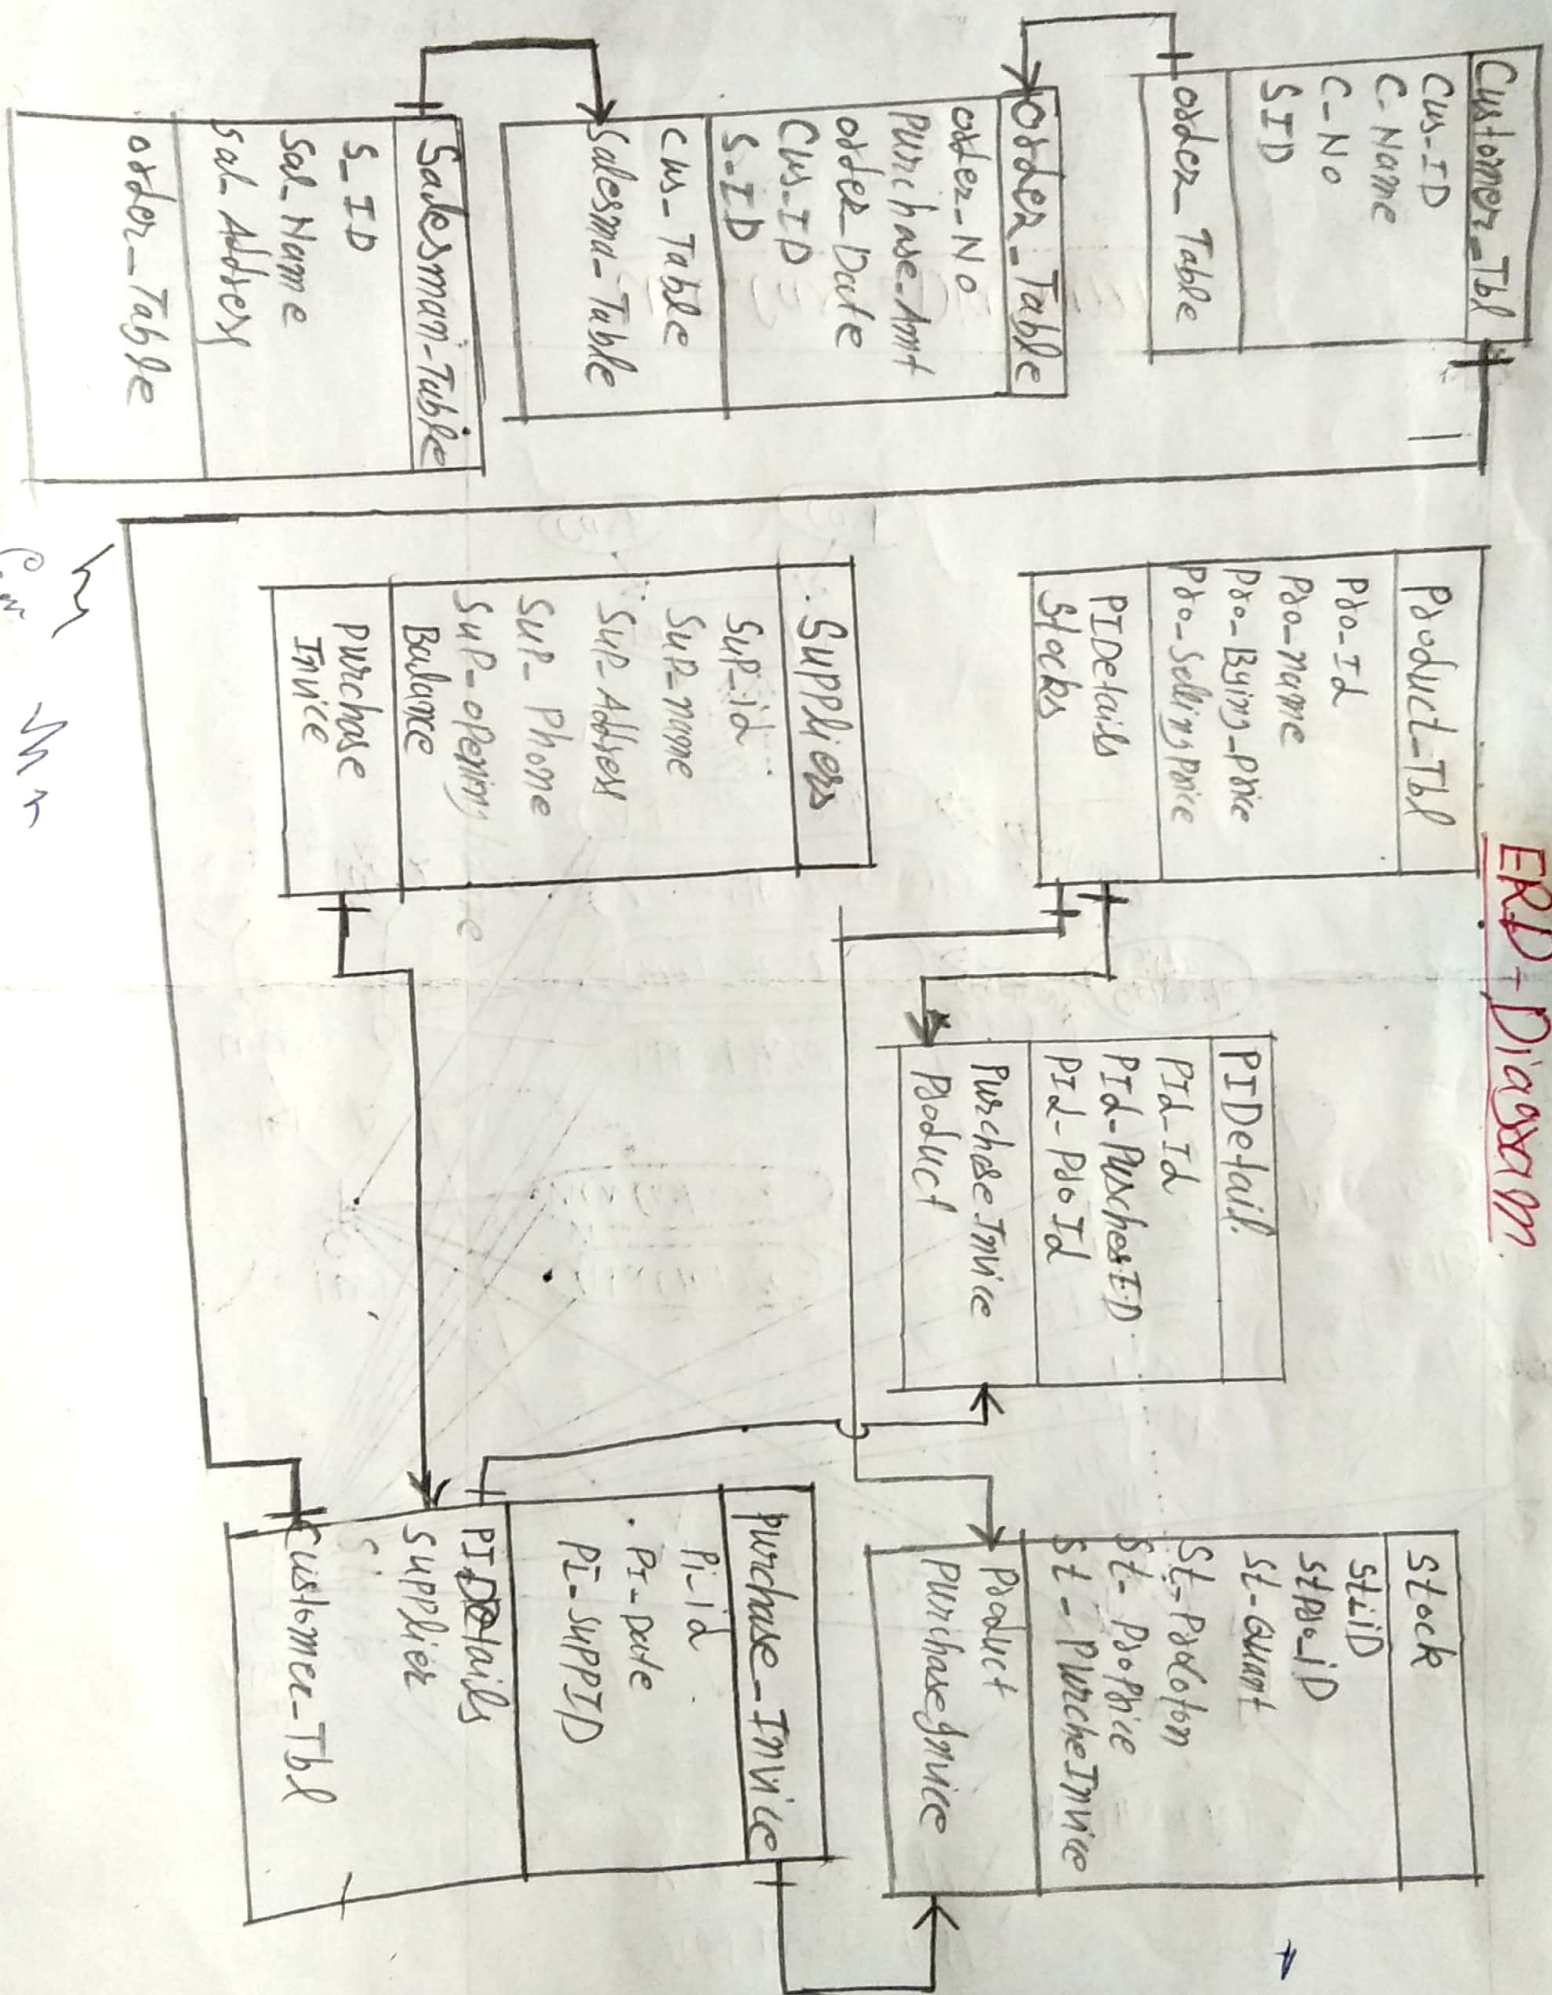 ERD-Diagram
Customer_Tbl
Cus-ID
C-Name
C-No
SID
order_Table
order_Table
order_No
Purchase-Amt
order_Date
Cus_ID
S-ID
Cus_Table
Salesma_Table
Salesman-Table
S_ID
Sal_Name
Sal_Address
order_Table
Product_Tbl
Pro_Id
Pro_name
Pro_Bying_Price
Pro_SellingPrice
PIDetails
Stocks
Suppliers
SuP_id
SuP_name
SuP_Address
SuP_Phone
SuP_opening
Balance
Purchase
Invice
PIDetail.
PId_Id
PId_PurchesID
PId_ProId
PurchaseInvice
Product
Stock
StiD
StPro_iD
St-Quant
St_ProCoton
St-ProPrice
St_PurcheInvice
Product
PurchaseInvice
Purchase_Invice
Pi_id
PI_Date
PI_SUPPID
PIDetails
Supplier
Customer_Tbl